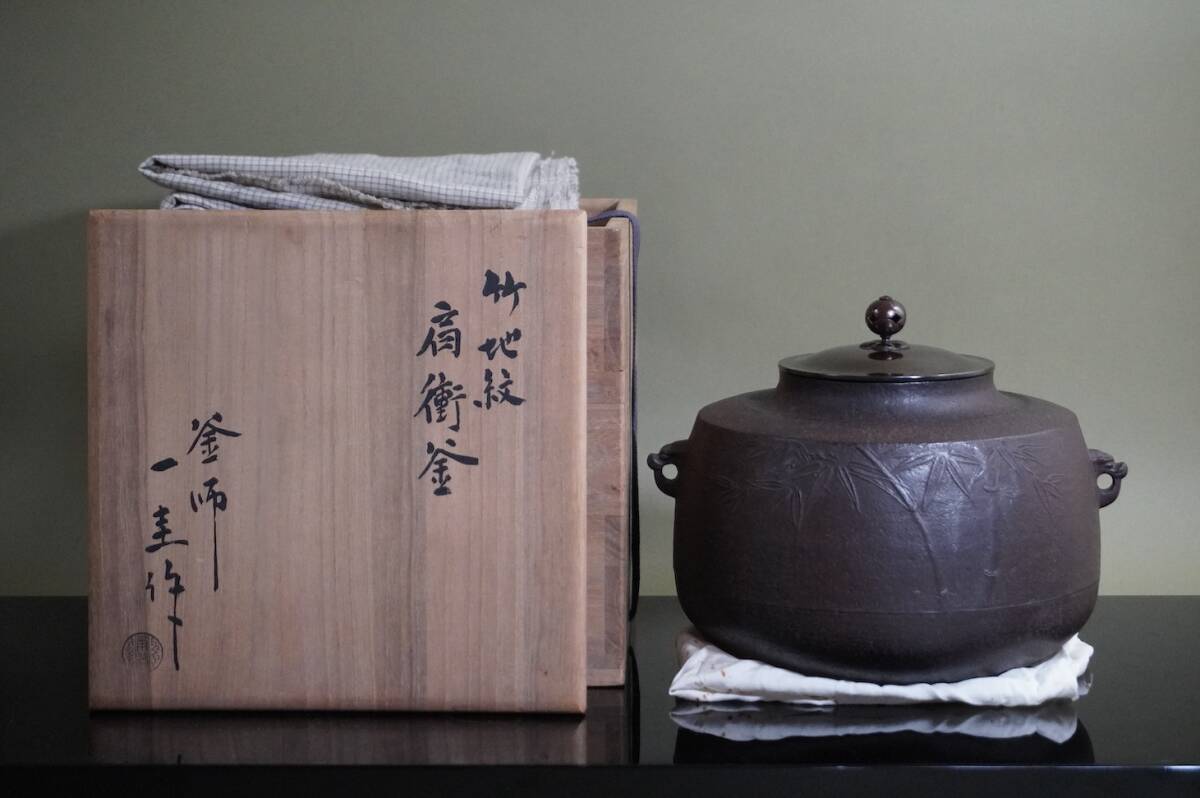 竹地紋
肩衝釜
釜師
一圭作